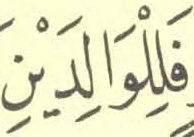 فَلِلْوَالِدَيْنِ